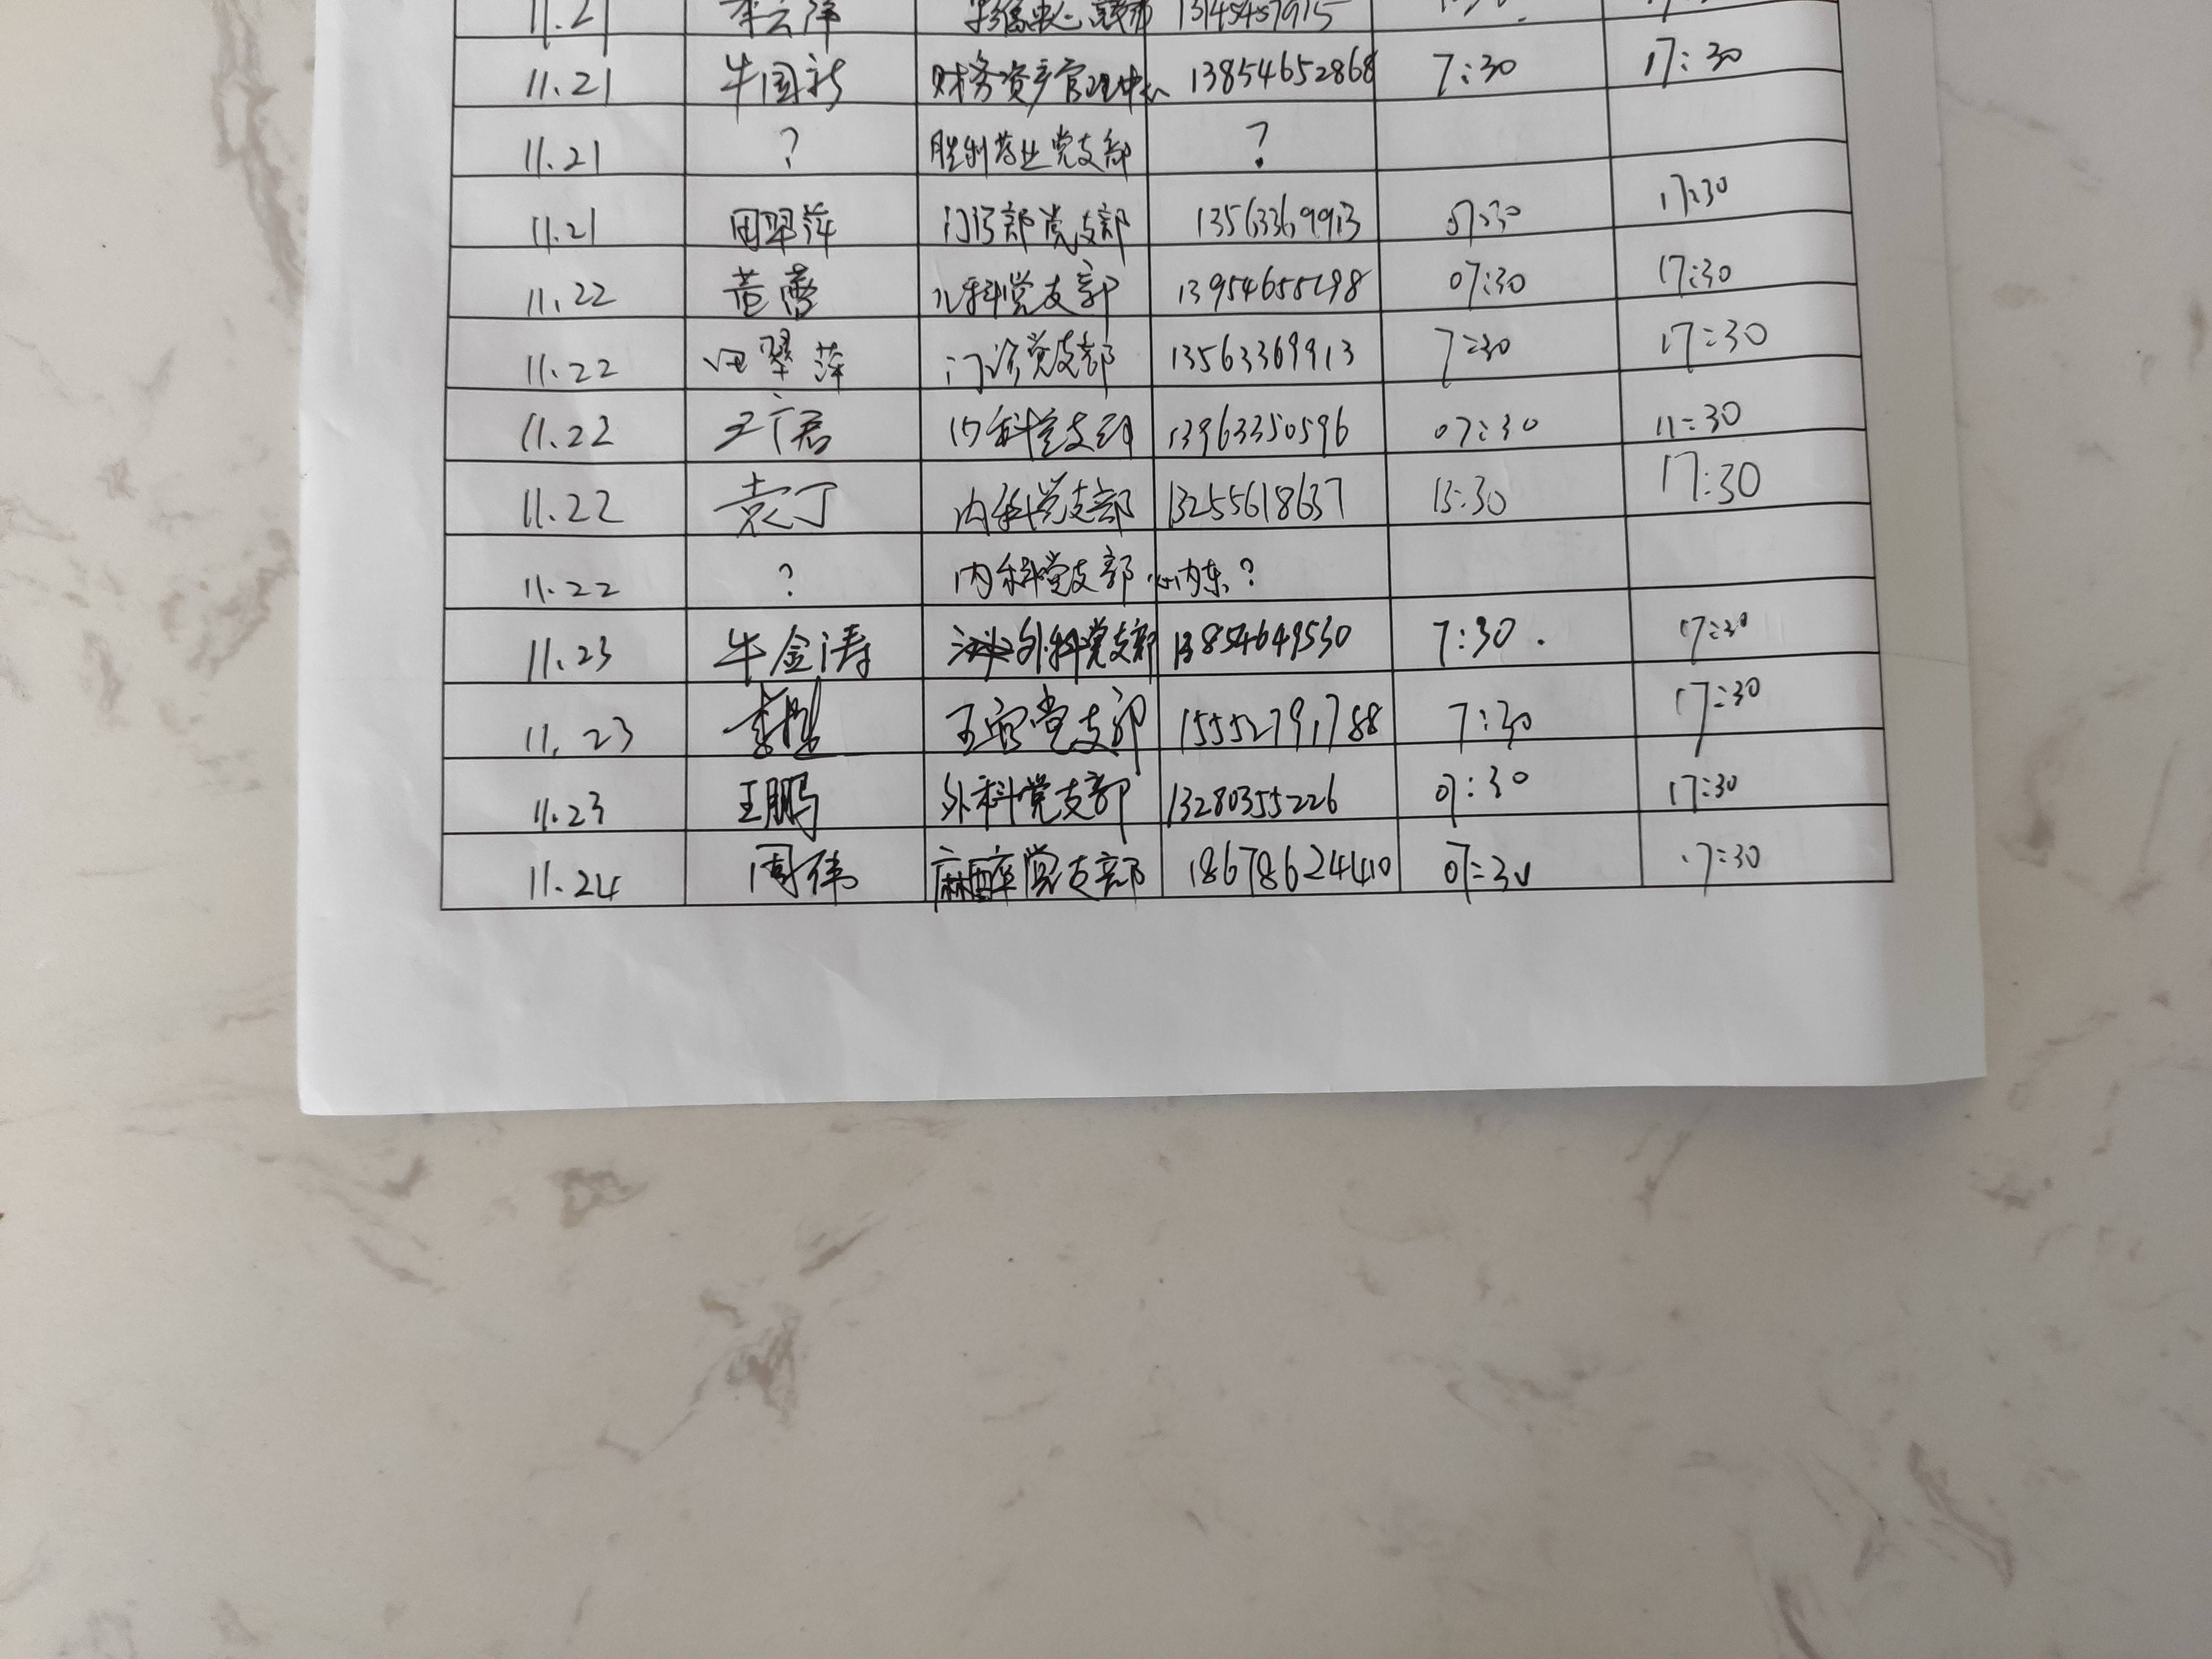 11.21 李云萍
11.21 牛国新 财务资产管理中心 13854652868 7:30 17:30
11.21 ? 胜利药业党支部 ?
11.21 田翠萍 门诊部党支部 13563369913 07:30 17:30
11.22 黄蕾 儿科党支部 13954655298 07:30 17:30
11.22 田翠萍 门诊党支部 13563369913 7:30 17:30
11.22 王广君 内科党支部 13963350596 07:30 11:30
11.22 袁丁 内科党支部 13255618637 13:30 17:30
11.22 ? 内科党支部 心内东?
11.23 牛金涛 外科党支部 13854649530 7:30. 17:30
11.23 党支部 15552791788 7:30 17:30
11.23 王鹏 外科党支部 13280355226 07:30 17:30
11.24 周伟 麻醉党支部 18678624410 07:30 17:30